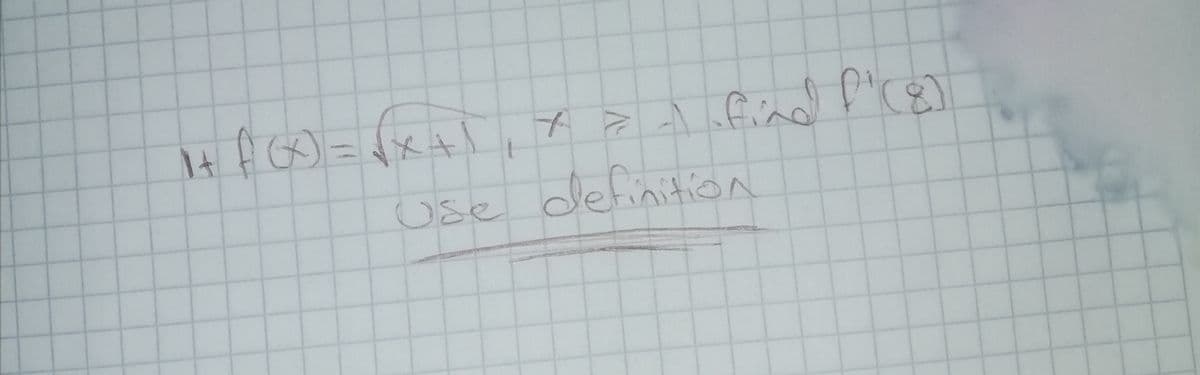 If f(x) = √x+1 , x ≥ -1 . find f'(8)
Use definition